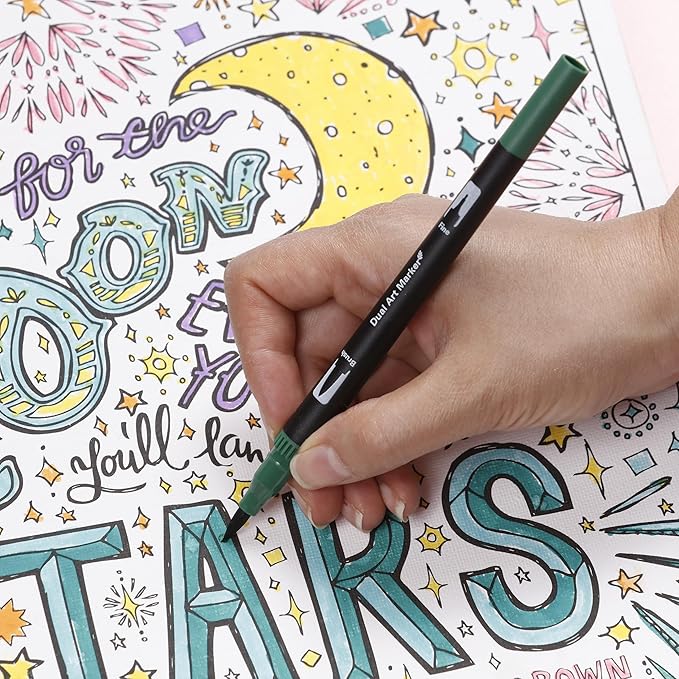 for the
OON
You'll lan
TARS
Fine
Dual Art Marker
Brush